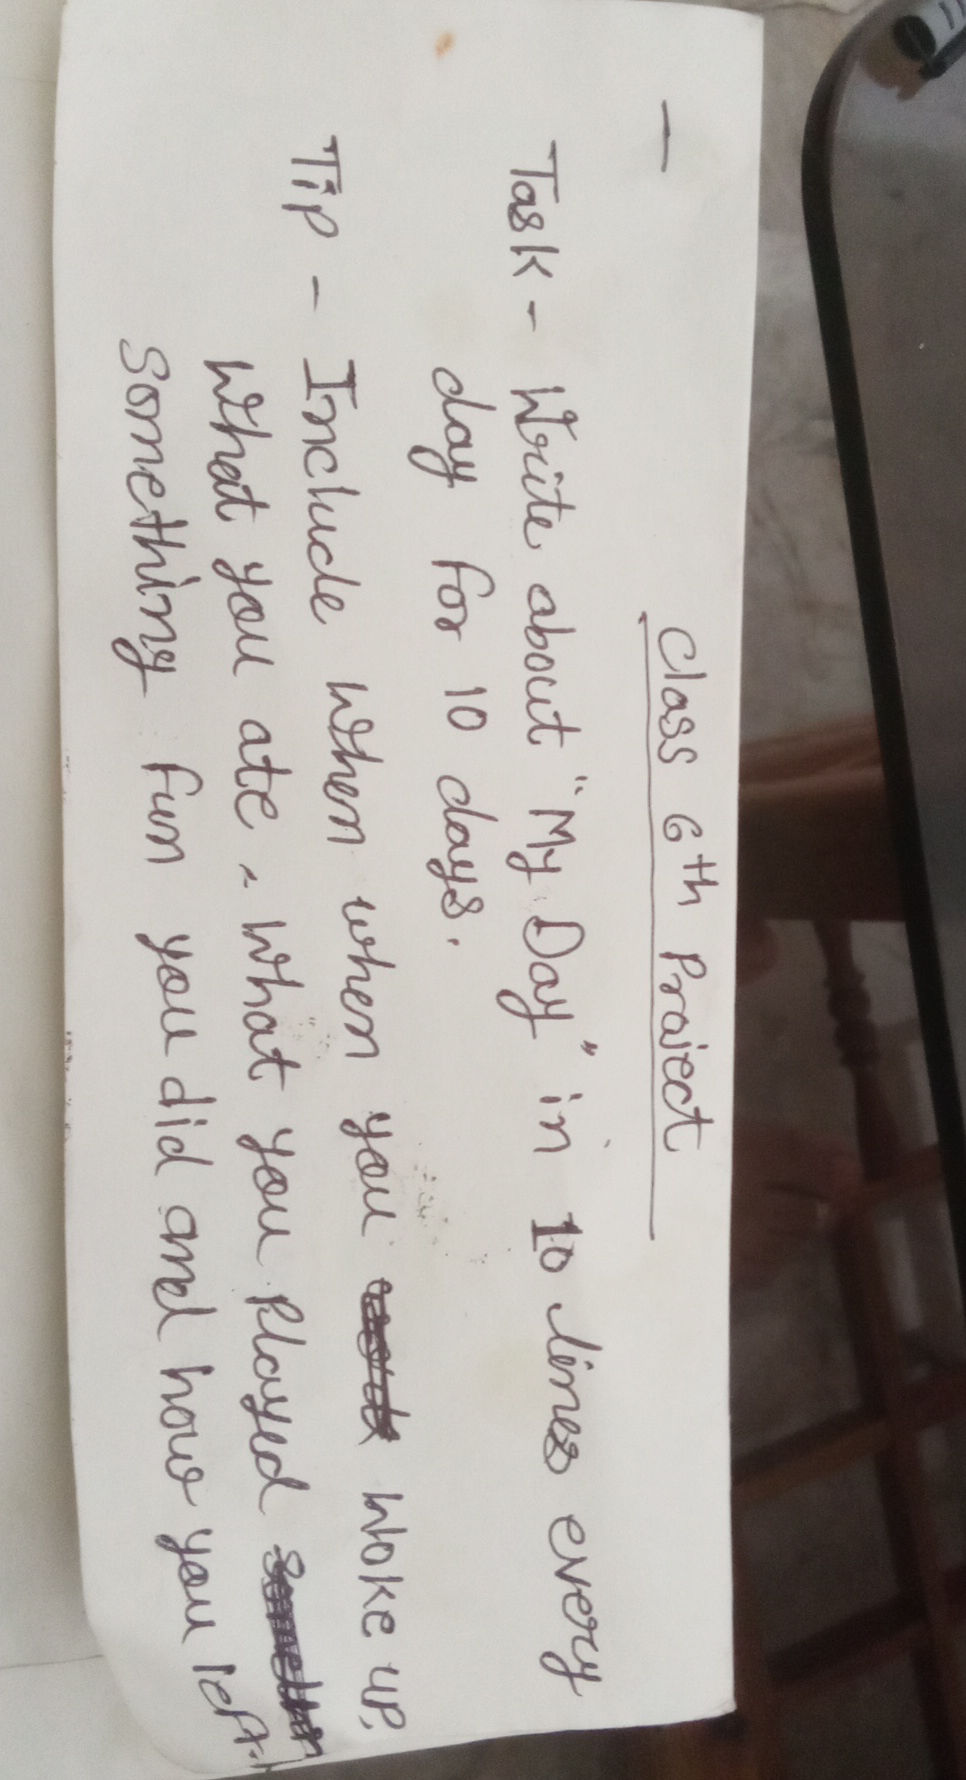 Class 6th Project
Task - Write about "My Day" in 10 lines every
day for 10 days.
Tip - Include when when you woke up,
what you ate, what you played
something fun you did and how you left.